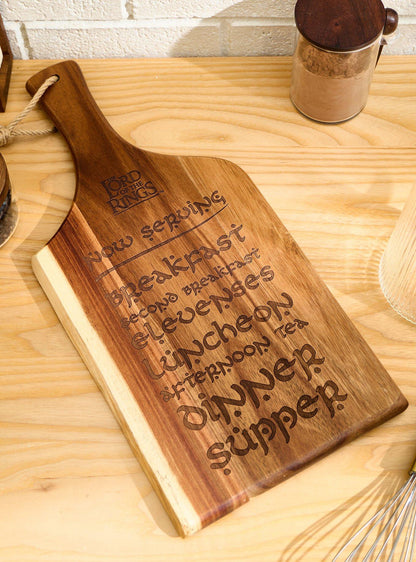 THE
LORD
OF THE
RINGS
NOW SERVING
BREAKFAST
SECOND BREAKFAST
ELEVENSES
LUNCHEON
AFTERNOON TEA
DINNER
SUPPER